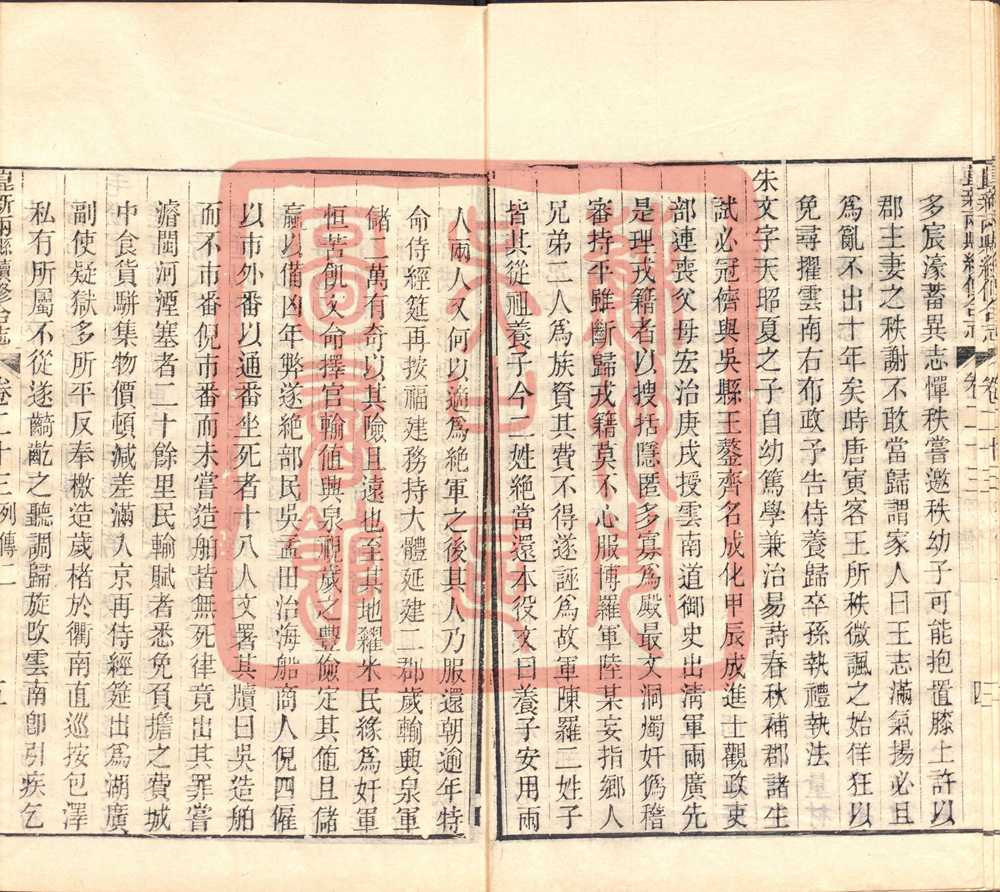 多宸濠蓄異志憚秩嘗邀秩幼子可能抱置膝上許以
郡主妻之秩謝不敢當歸謂家人曰王志滿氣揚必且
爲亂不出十年矣時唐寅客王所秩微諷之始佯狂以
免尋擢雲南右布政予告侍養歸卒孫執禮執法
朱文字天昭夏之子自幼篤學兼治易詩春秋補郡諸生
試必冠儕與吳縣王鏊齊名成化甲辰成進士觀政吏
部連喪父母宏治庚戌授雲南道御史出淸軍兩廣先
是理戎籍者以搜括隱匿多寡爲殿最文洞燭奸僞稽
審持平雖斷歸戎籍莫不心服博羅軍陸某妄指鄉人
兄弟二人爲族資其費不得遂誣爲故軍陳羅二姓子
皆其從祖養子今二姓絶當還本役文曰養子安用兩
人兩人又何以適爲絶軍之後其人乃服還朝逾年特
命侍經筵再按福建務持大體延建二郡歲輸興泉軍
儲二萬有奇以其險且遠也至其地糴米民緣爲奸軍
恒苦飢文命擇官輸値興泉視歲之豐儉定其値且儲
贏以備凶年弊遂絶部民吳孟田治海船商人倪四僱
以市外番以通番坐死者十八人文署其牘曰吳造舶
而不市番倪市番而未嘗造舶皆無死律竟出其罪嘗
濬閩河湮塞者二十餘里民輸賦者悉免負擔之費城
中食貨駢集物價頓減差滿入京再侍經筵出爲湖廣
副使疑獄多所平反奉檄造歲楮於衢南直巡按包澤
私有所屬不從遂齮齕之聽調歸旋改雲南卽引疾乞
崑新兩縣續修合志
卷二十三
四
崑新兩縣續修合志
卷二十三 列傳二
五
蘇州大學圖書館